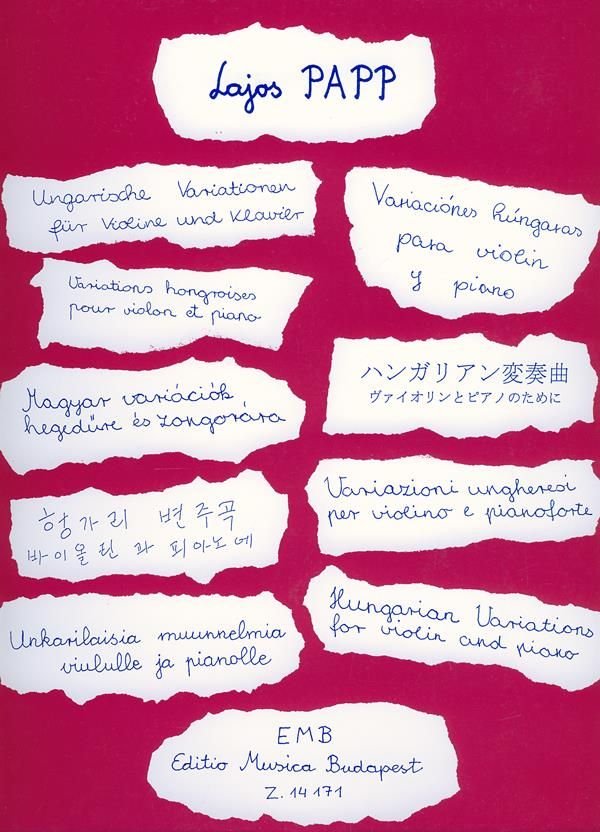 Lajos PAPP
Ungarische Variationen
für Violine und Klavier
Variaciónes húngaras
para violin
y piano
Variations hongroises
pour violon et piano
ハンガリアン変奏曲
ヴァイオリンとピアノのために
Magyar variációk
hegedűre és zongorára
Variazioni ungheresi
per violino e pianoforte
헝가리 변주곡
바이올린 과 피아노에
Unkarilaisia muunnelmia
viululle ja pianolle
Hungarian Variations
for violin and piano
EMB
Editio Musica Budapest
Z. 14 171